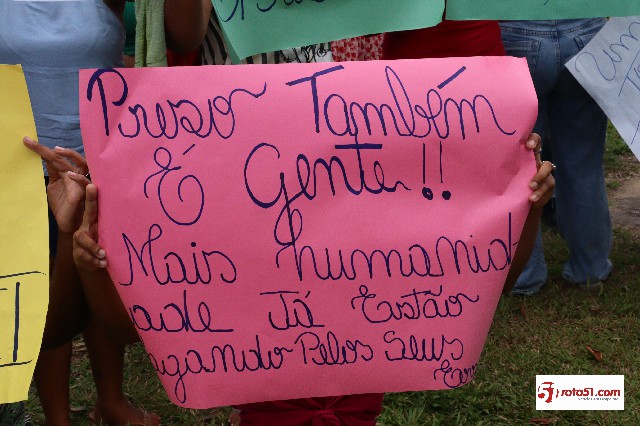 Preso Também
É Gente!!
Mais humanid
ade Já Estão
agando Pelos Seus
Erro
rota51.com